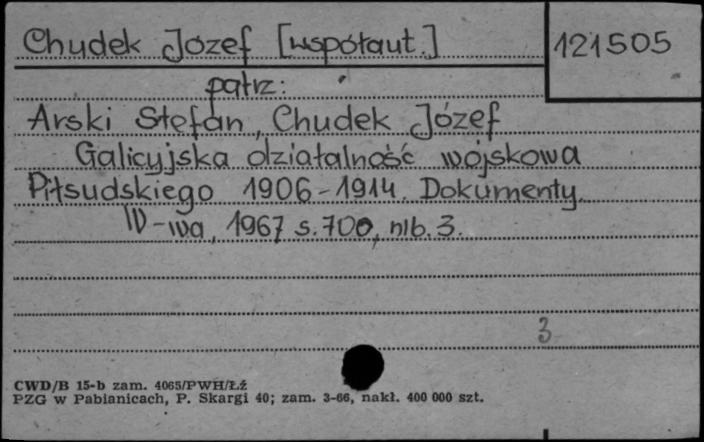 Chudek Józef [współaut.]
121505
patrz:
Arski Stefan, Chudek Józef
Galicyjska działalność wojskowa
Piłsudskiego 1906-1914. Dokumenty.
W-wa, 1967 s.700, nlb.3.
3
CWD/B 15-b zam. 4065/PWH/Łź
PZG w Pabianicach, P. Skargi 40; zam. 3-66, nakł. 400 000 szt.